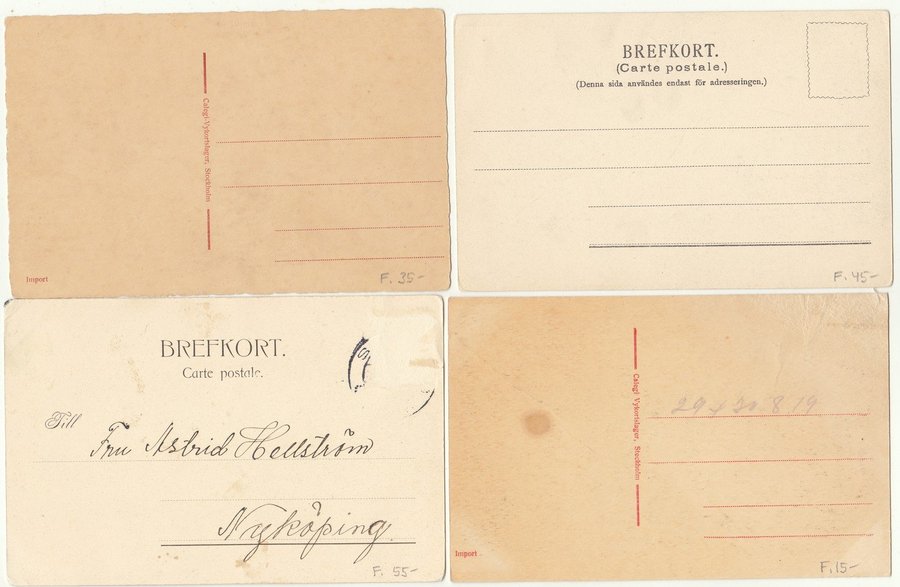 Calegi-Vykortslager, Stockholm
Import
F. 35-
BREFKORT.
(Carte postale.)
(Denna sida användes endast för adresseringen.)
F. 45-
BREFKORT.
Carte postale.
Till
Fru Astrid Hellström
Nyköping
F. 55-
Calegi Vykortslager, Stockholm
29 + 30 8 19
Import
F. 15-